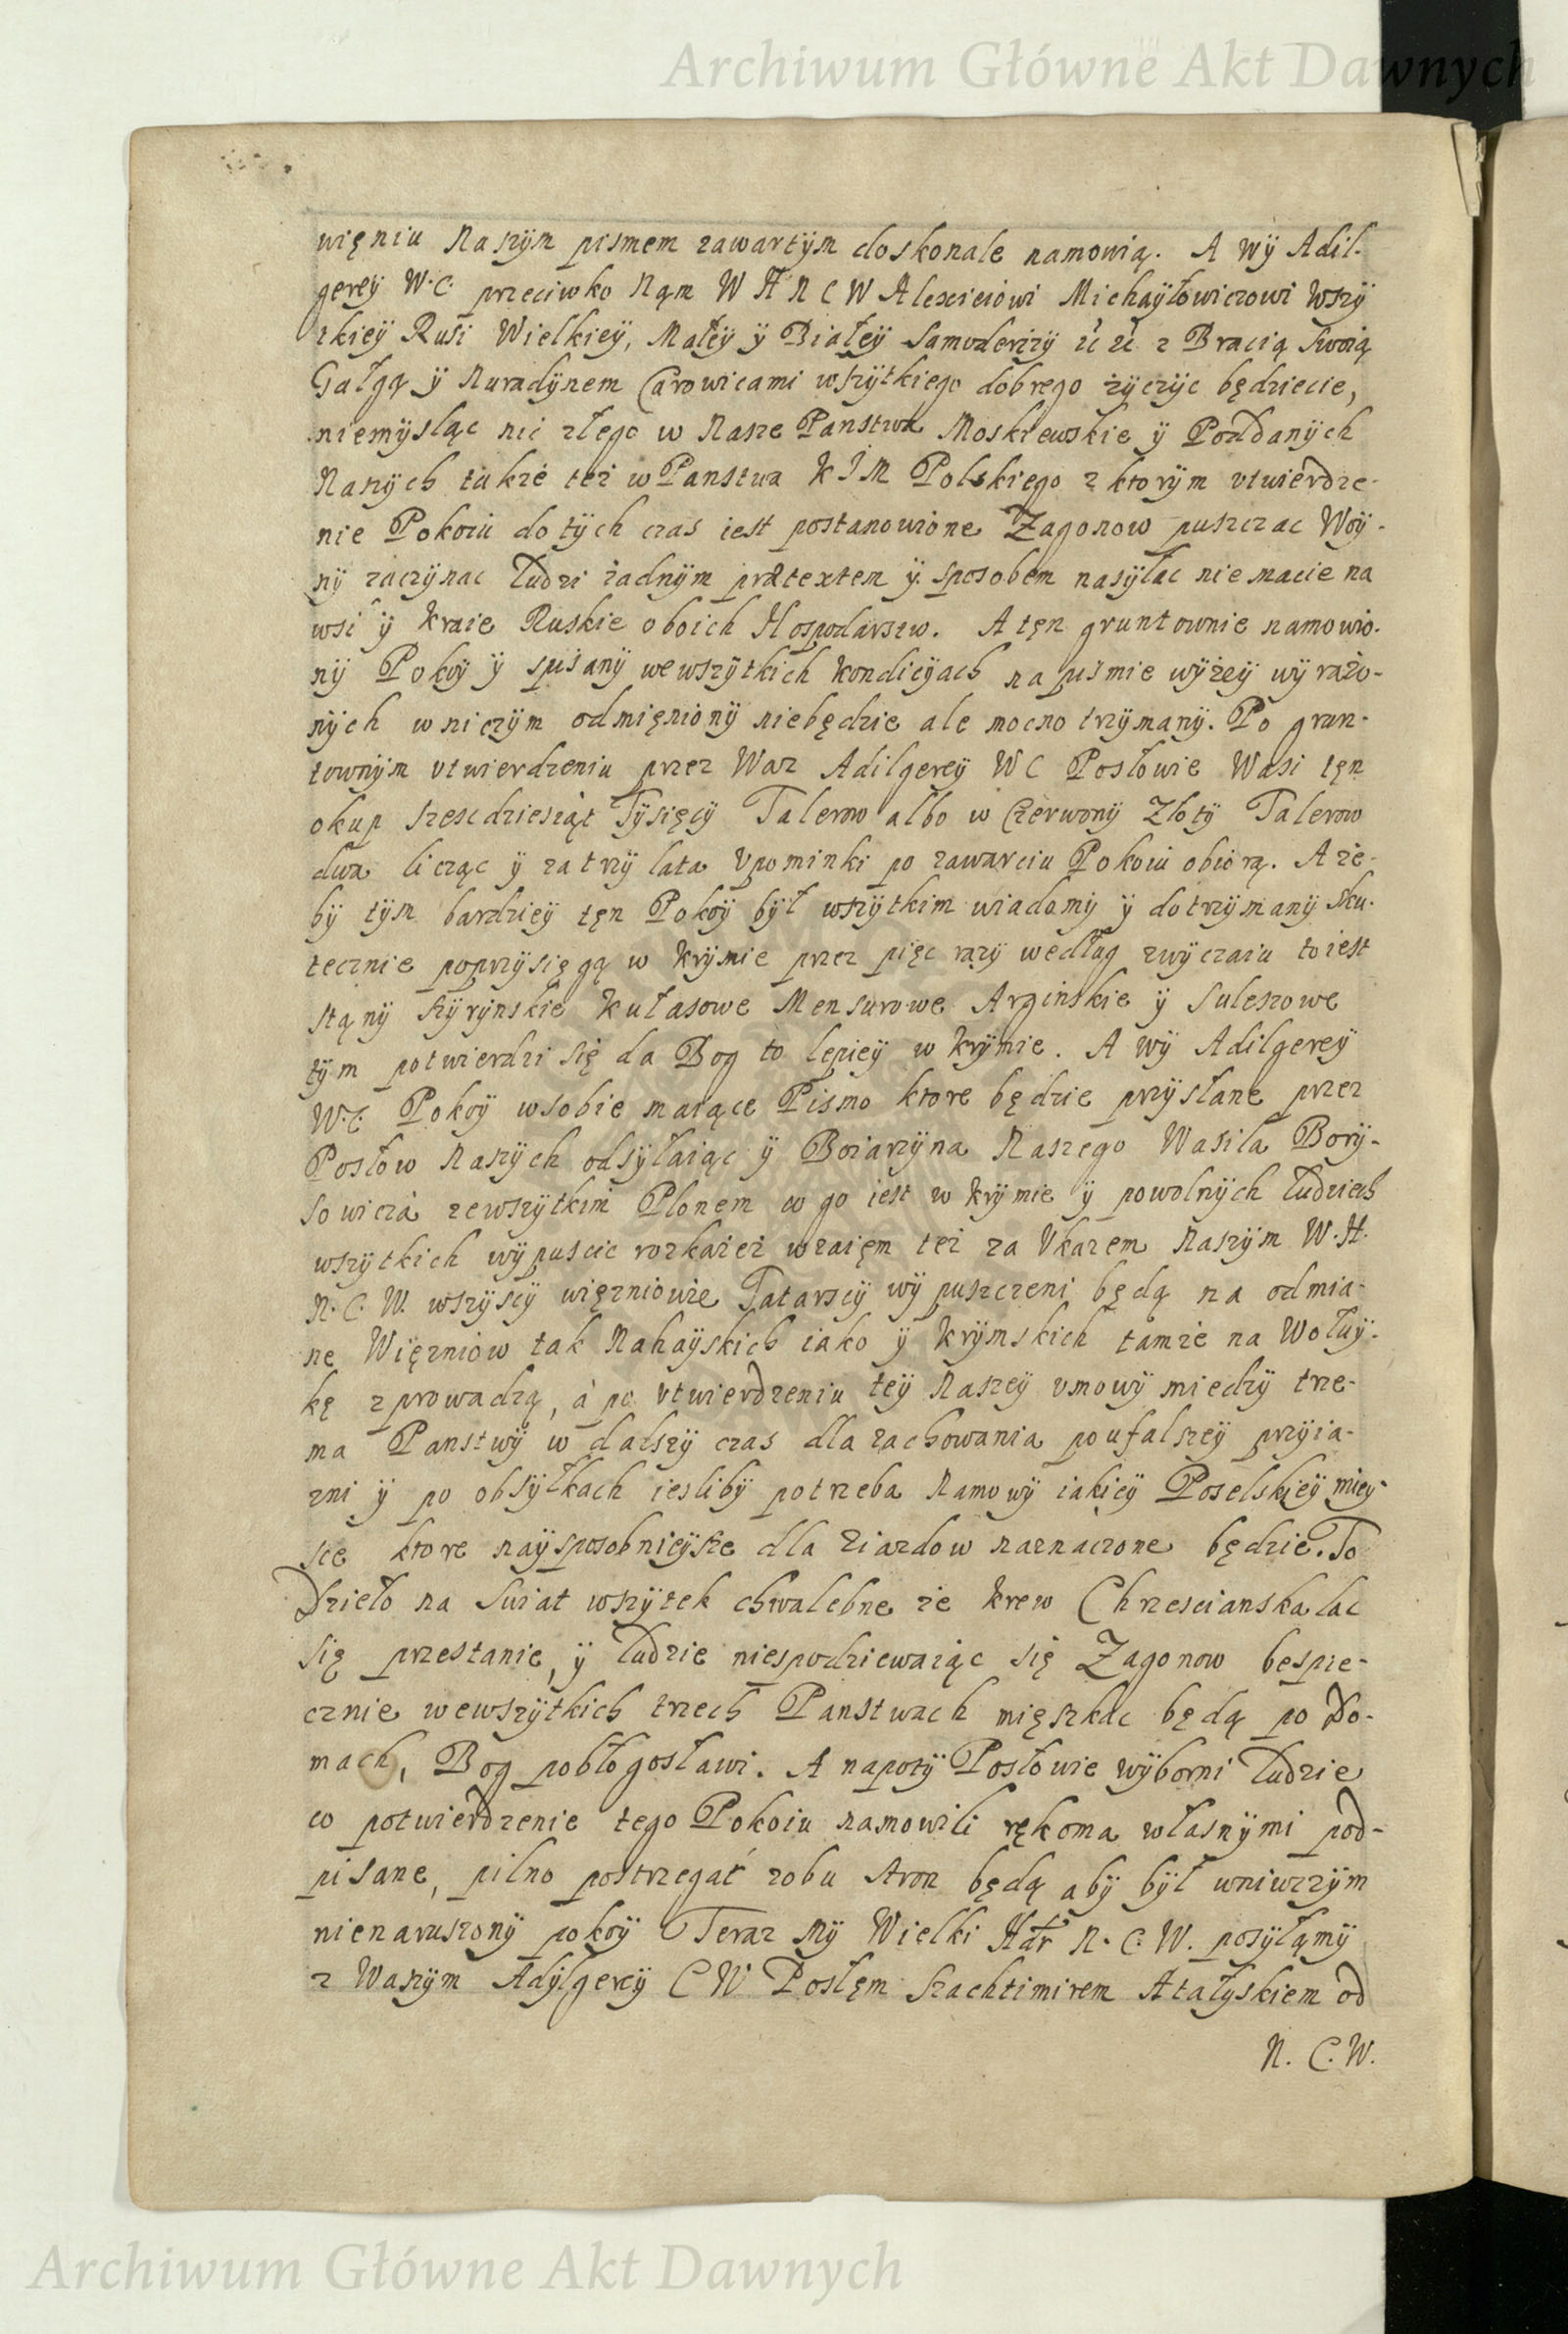 Archiwum Główne Akt Dawnych
więniu Naszÿm pismem zawartÿm doskonale namowią. A wÿ Adil-
gereÿ W.C. przeciwko Nąm W H N C W Alexieiowi Michaÿłowiczowi wszÿ
zkieÿ Rusi Wielkieÿ, Małeÿ ÿ Białeÿ Samoderzzÿ z Bracią swoią
Gałgą ÿ Nuradÿnem Carowicami wszÿtkiego dobrego zÿczÿc będziecie,
niemÿsląc nic złego w Nasze Panstwa Moskiewskie ÿ Poddanÿch
Naszÿch takze tez w Panstwa K J M Polskiego z ktorÿm vtwierdze-
nie Pokoiu do tÿch czas iest postanowione Zagonow puszczac Woÿ-
nÿ zaczÿnac Ludzi zadnÿm prætextem ÿ sposobem nasÿłac nie macie na
wsi ÿ kraie Ruskie oboich Hospodarstw. A tęn gruntownie namowio-
nÿ Pokoÿ ÿ spisanÿ we wszÿtkich kondicÿach na pismie wÿzeÿ wÿrazo-
nÿch w niczÿm odmięnionÿ niebędzie ale mocno trzÿmanÿ. Po grun-
townÿm vtwierdzeniu przez Waz Adilgereÿ W C Posłowie Wasi tęn
okup szescdziesiąt Tÿsięcÿ Talerow albo w Czerwonÿ Złotÿ Talerow
dwa licząc ÿ za trzÿ lata Vpominki po zawarciu Pokoiu obiorą. A ze-
bÿ tÿm bardzieÿ tęn Pokoÿ bÿł wszÿtkim wiadomÿ ÿ dotrzÿmanÿ sku-
tecznie poprzÿsięgą w krÿmie przez pięc razÿ według zwÿczaiu to iest
stąnÿ szÿrÿnskie kułasowe Mensurowe Arginskie ÿ Suleszowe
tÿm potwierdzi się da Bog to lepieÿ w krÿmie. A wÿ Adilgereÿ
W.C. Pokoÿ w sobie maiące Pismo ktore będzie przÿsłane przez
Posłow Naszÿch odsÿłaiąc ÿ Boiarzÿna Naszego Wasila Borÿ-
sowicza zewszÿtkim Plonem co go iest w krÿmie ÿ powolnÿch Ludziech
wszÿtkich wÿpuscic rozkazez wzaięm tez za Vkazem Naszÿm W.H.
N.C.W. wszÿscÿ więzniowie Tatarscÿ wÿpuszczeni będą na odmia-
ne Więzniow tak Nahaÿskich iako ÿ krÿmskich tamze na Wołuÿ-
kę zprowadzą, à po vtwierdzeniu teÿ Naszeÿ vmowÿ miedzÿ trze-
ma Panstwÿ w dalszÿ czas dla zachowania poufalszeÿ przÿia-
zni ÿ po obsÿłkach ieslibÿ potrzeba Namowÿ iakieÿ Poselskieÿ miey-
sce ktore naÿsposobnieÿsze dla ziazdow naznaczone będzie. To
Dzieło na swiat wszÿtek chwalebne ze krew Chrzescianska lac
się przestanie, ÿ Ludzie niespodziewaiąc się Zagonow bespie-
cznie we wszÿtkich trzech Panstwach mięszkac będą po Do-
mach, Bog pobłogosławi. A napotÿ Posłowie wÿborni Ludzie
co potwierdzenie tego Pokoiu namowili rękoma własnÿmi pod-
pisane, pilno postrzegać zobu stron będą abÿ bÿł wniwczÿm
nienaruszonÿ pokoÿ Teraz Mÿ Wielki Hdr N.C.W. posÿłąmÿ
z Waszÿm Adÿlgereÿ C W Posłęm Szachtimirem Atałÿskiem od
N. C. W.
Archiwum Główne Akt Dawnych